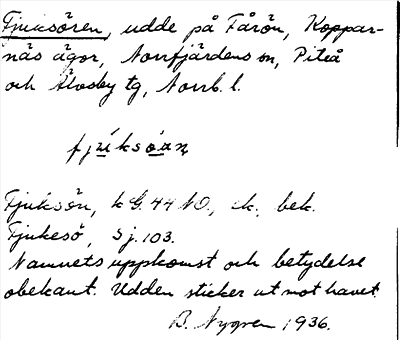 Fjuksören, udde på Fårön, Koppar-
näs ägor, Norrfjärdens sn, Piteå
och Älvsby tg, Norrb. l.
fjuksöan
Fjuksön, k G. 44 NO., ek., bek.
Fjukesö, Sj. 103.
Namnets uppkomst och betydelse
obekant. Udden sticker ut mot havet.
B. Nygren 1936.